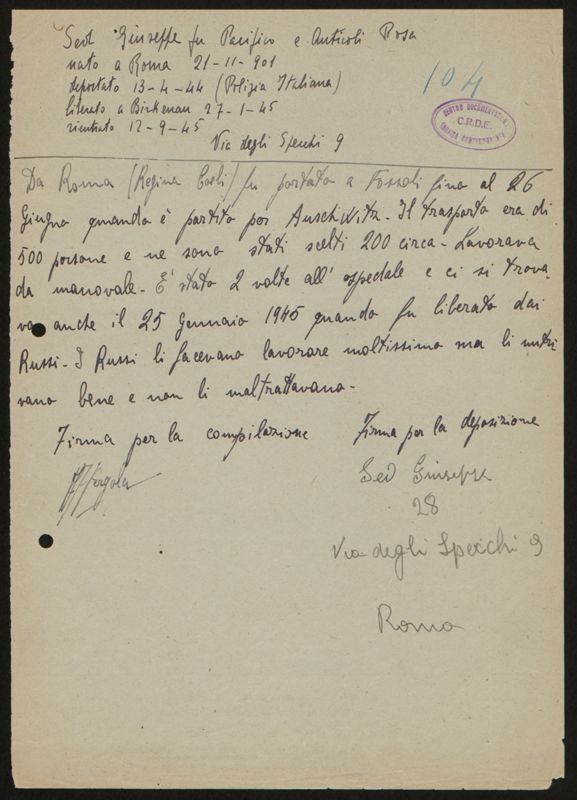 Sed Giuseppe fu Pacifico e Anticoli Rosa
nato a Roma 21-11-901
deportato 13-4-44 (Polizia Italiana)
liberato a Birkenau 27-1-45
rientrato 12-9-45
Via degli Specchi 9
104
CENTRO DOCUMENTAZIONE
C.R.D.E.
EBRAICA CONTEMPORANEA
Da Roma (Regina Coeli) fu portato a Fossoli fino al 26
Giugno quando è partito per Auschwitz. Il trasporto era di
500 persone e ne sono stati scelti 200 circa - Lavorava
da manovale - E' stato 2 volte all' ospedale e ci si trova-
va anche il 25 Gennaio 1945 quando fu liberato dai
Russi - I Russi li facevano lavorare moltissimo ma li nutri
vano bene e non li maltrattavano -
Firma per la compilazione
Firma per la deposizione
Sed Giuseppe
28
Via degli Specchi 9
Roma